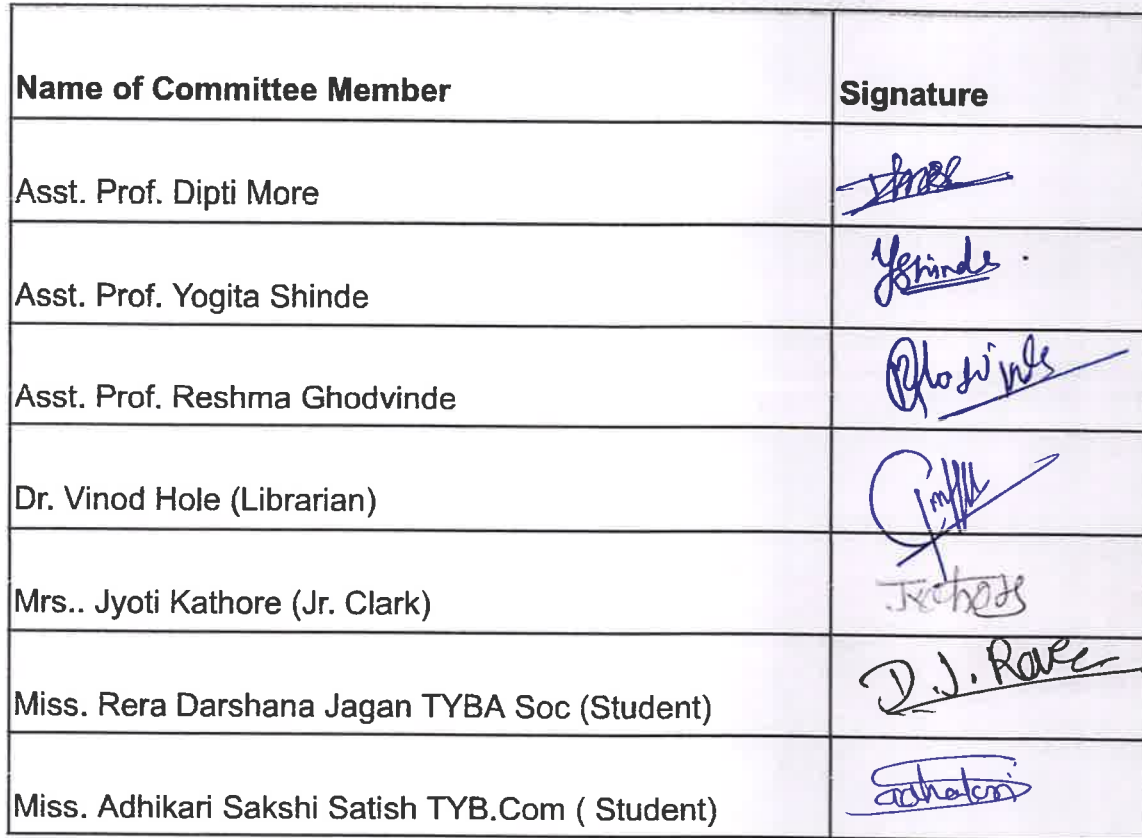 Name of Committee Member Signature
Asst. Prof. Dipti More
Asst. Prof. Yogita Shinde Yshinde
Asst. Prof. Reshma Ghodvinde
Dr. Vinod Hole (Librarian)
Mrs.. Jyoti Kathore (Jr. Clark)
Miss. Rera Darshana Jagan TYBA Soc (Student) D.J.
Miss. Adhikari Sakshi Satish TYB.Com ( Student)